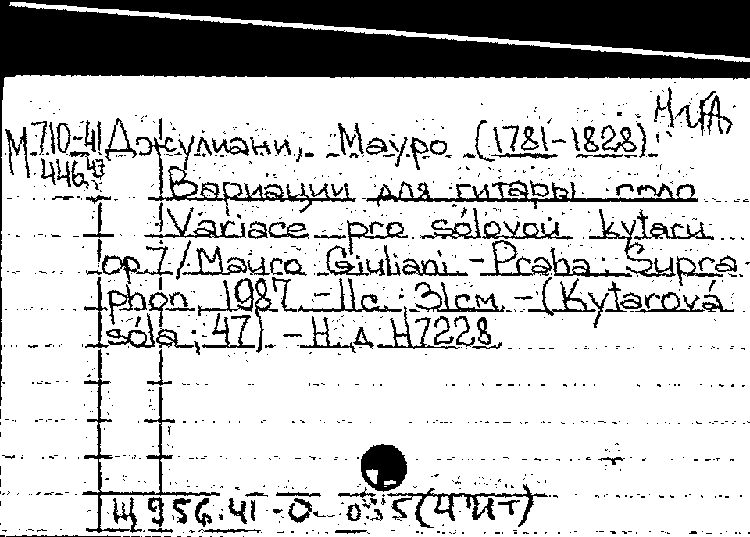 М 710-41 Джулиани, Мауро (1781-1828)
446
Вариации для гитары соло
Variace pro sólovou kytaru
op. 7 / Mauro Giuliani - Praha: Supra-
phon, 1987. - 11 с.; 31 см. - (Kytarová
sóla; 47) - Н. д. H7228.
Щ 956.41-0